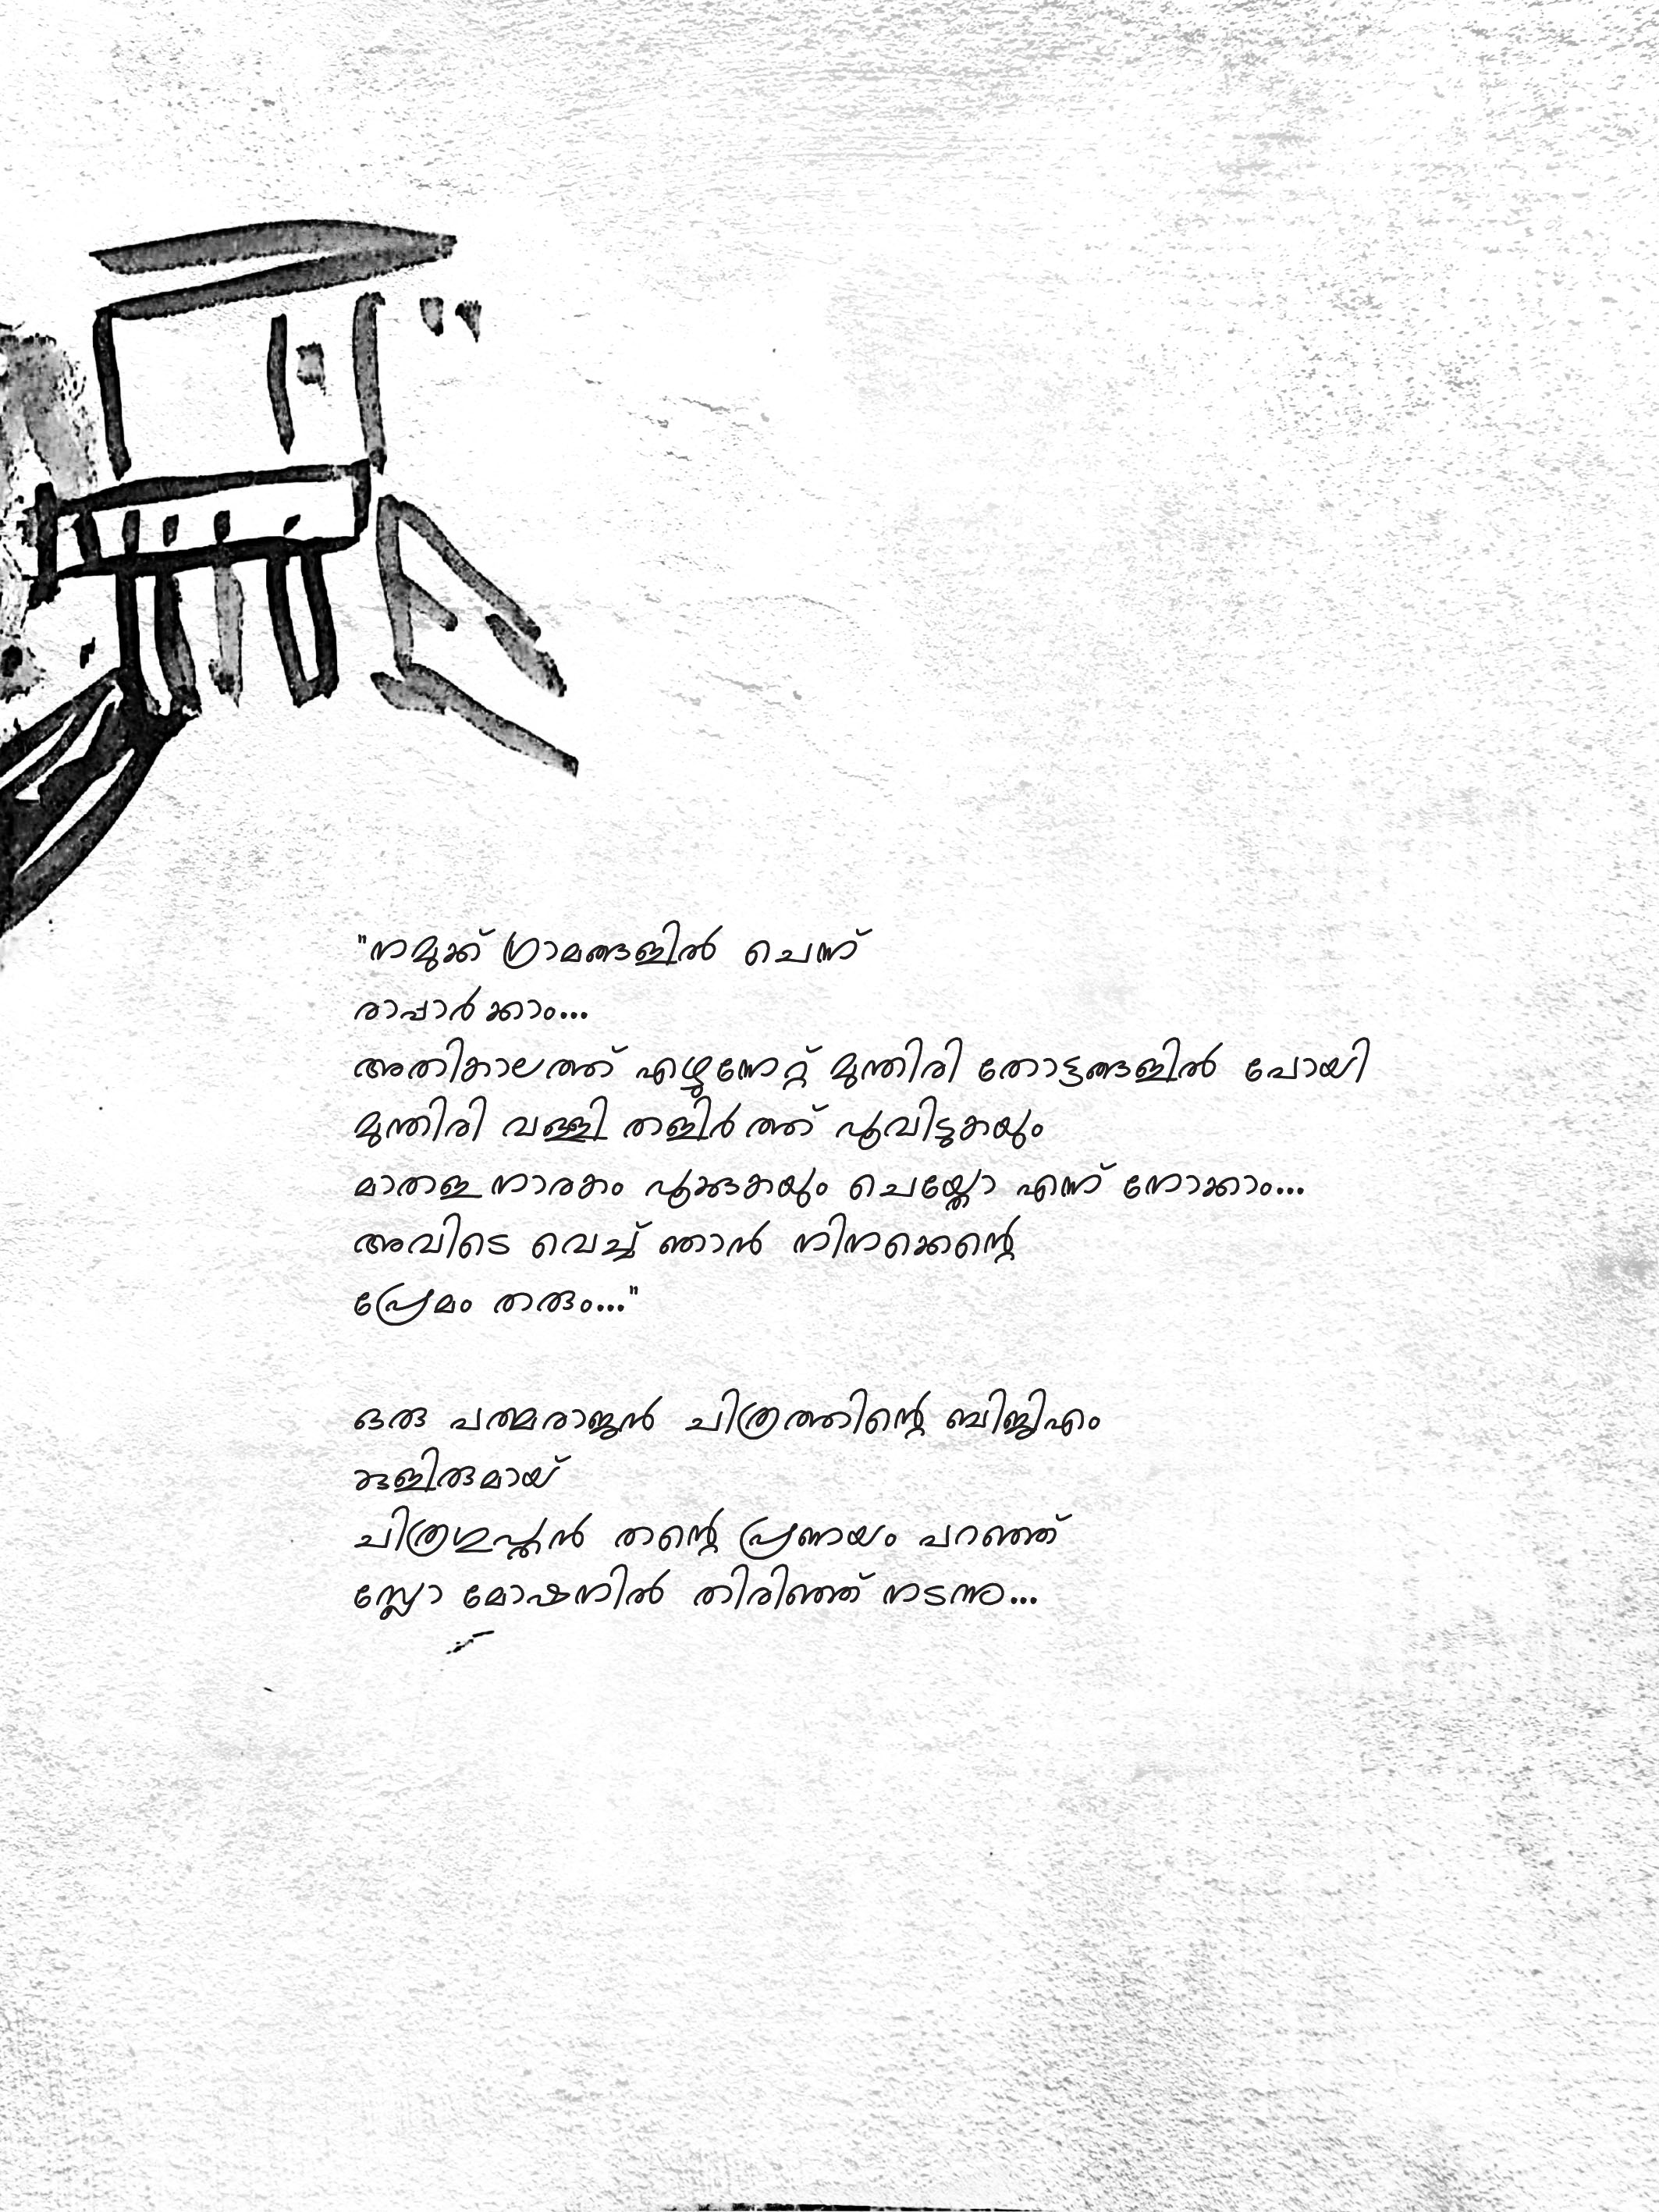 "നമുക്ക് ഗ്രാമങ്ങളിൽ ചെന്ന്
രാപ്പാർക്കാം...
അതികാലത്ത് എഴുന്നേറ്റ് മുന്തിരി തോട്ടങ്ങളിൽ പോയി
മുന്തിരി വള്ളി തളിർത്ത് പൂവിടുകയും
മാതള നാരകം പൂക്കുകയും ചെയ്തോ എന്ന് നോക്കാം...
അവിടെ വെച്ച് ഞാൻ നിനക്കെന്റെ
പ്രേമം തരും..."
ഒരു പത്മരാജൻ ചിത്രത്തിന്റെ ബിജിഎം
കുളിരുമായ്
ചിത്രഗുപ്തൻ തന്റെ പ്രണയം പറഞ്ഞ്
സ്ലോ മോഷനിൽ തിരിഞ്ഞ് നടന്നു...